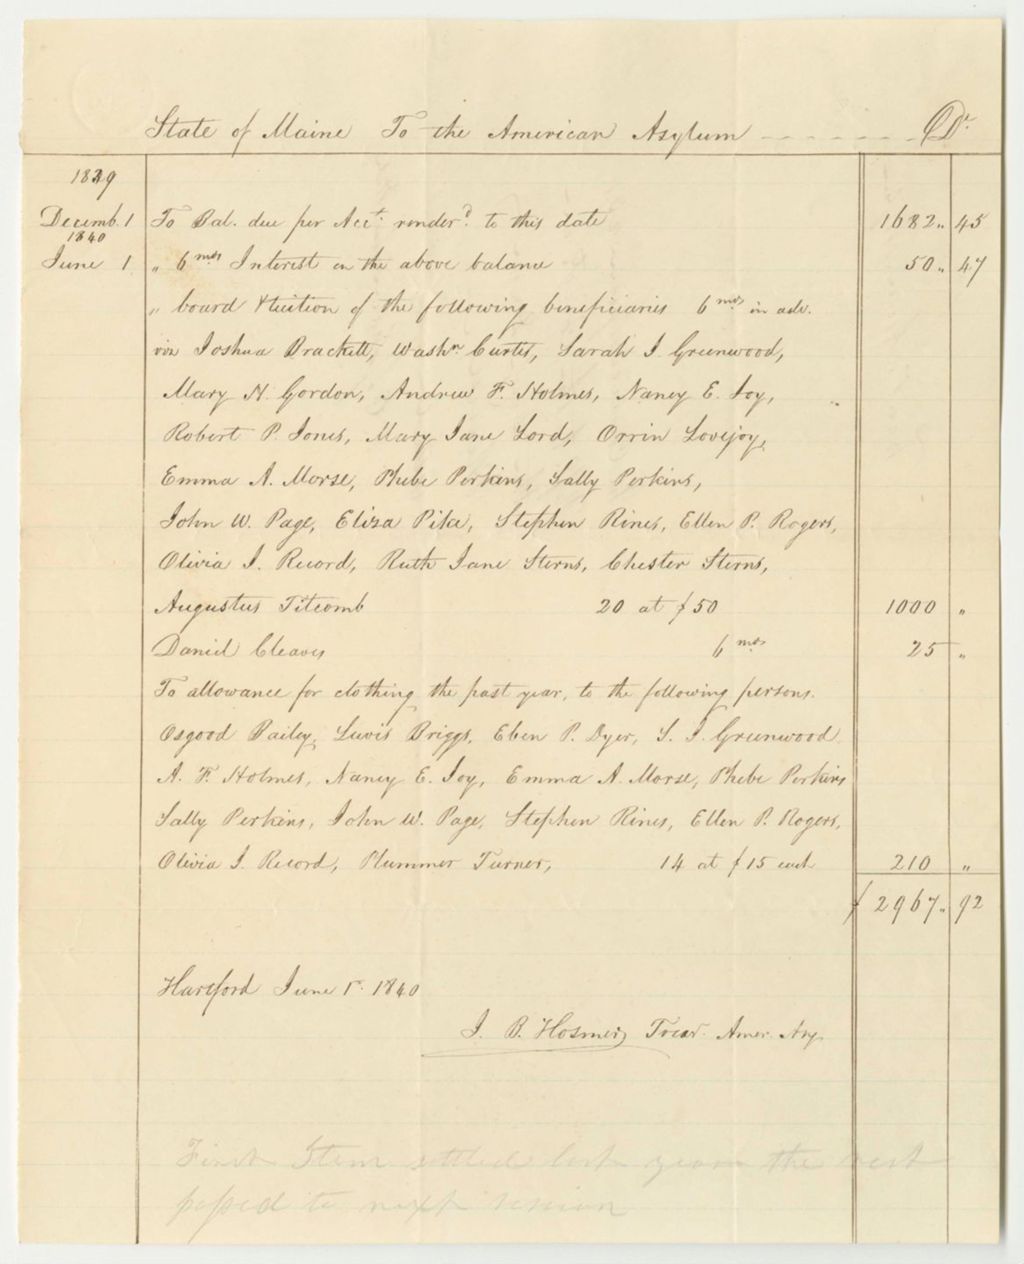 State of Maine To the American Asylum - - - - - - - Dr.
1839
Decemb. 1 To Bal. due per Acct. renderd. to this date 1682 „ 45
1840
June 1 „ 6 mos Interest on the above balance 50 „ 47
„ board & tuition of the following beneficiaries 6 mos in adv.
viz Joshua Brackett, Washn. Curtis, Sarah J. Greenwood,
Mary H. Gordon, Andrew F. Holmes, Nancy E. Joy,
Robert P. Jones, Mary Jane Lord, Orrin Lovejoy,
Emma A. Morse, Phebe Perkins, Sally Perkins,
John W. Page, Eliza Pike, Stephen Rines, Ellen P. Rogers,
Olivia J. Record, Ruth Jane Sterns, Chester Sterns,
Augustus Titcomb 20 at $50 1000 „
Daniel Cleaves 6 mos 25 „
To allowance for clothing the past year, to the following persons.
Osgood Bailey, Lewis Briggs, Eben P. Dyer, S. J. Greenwood
A. F. Holmes, Nancy E. Joy, Emma A Morse, Phebe Perkins
Sally Perkins, John W. Page, Stephen Rines, Ellen P. Rogers,
Olivia J. Record, Plummer Turner, 14 at $15 each 210 „
$2967 „ 92
Hartford June 1st. 1840
J. B. Hosmer, Trear. Amer. Asy.
First Item settled last year the rest
passed to next session